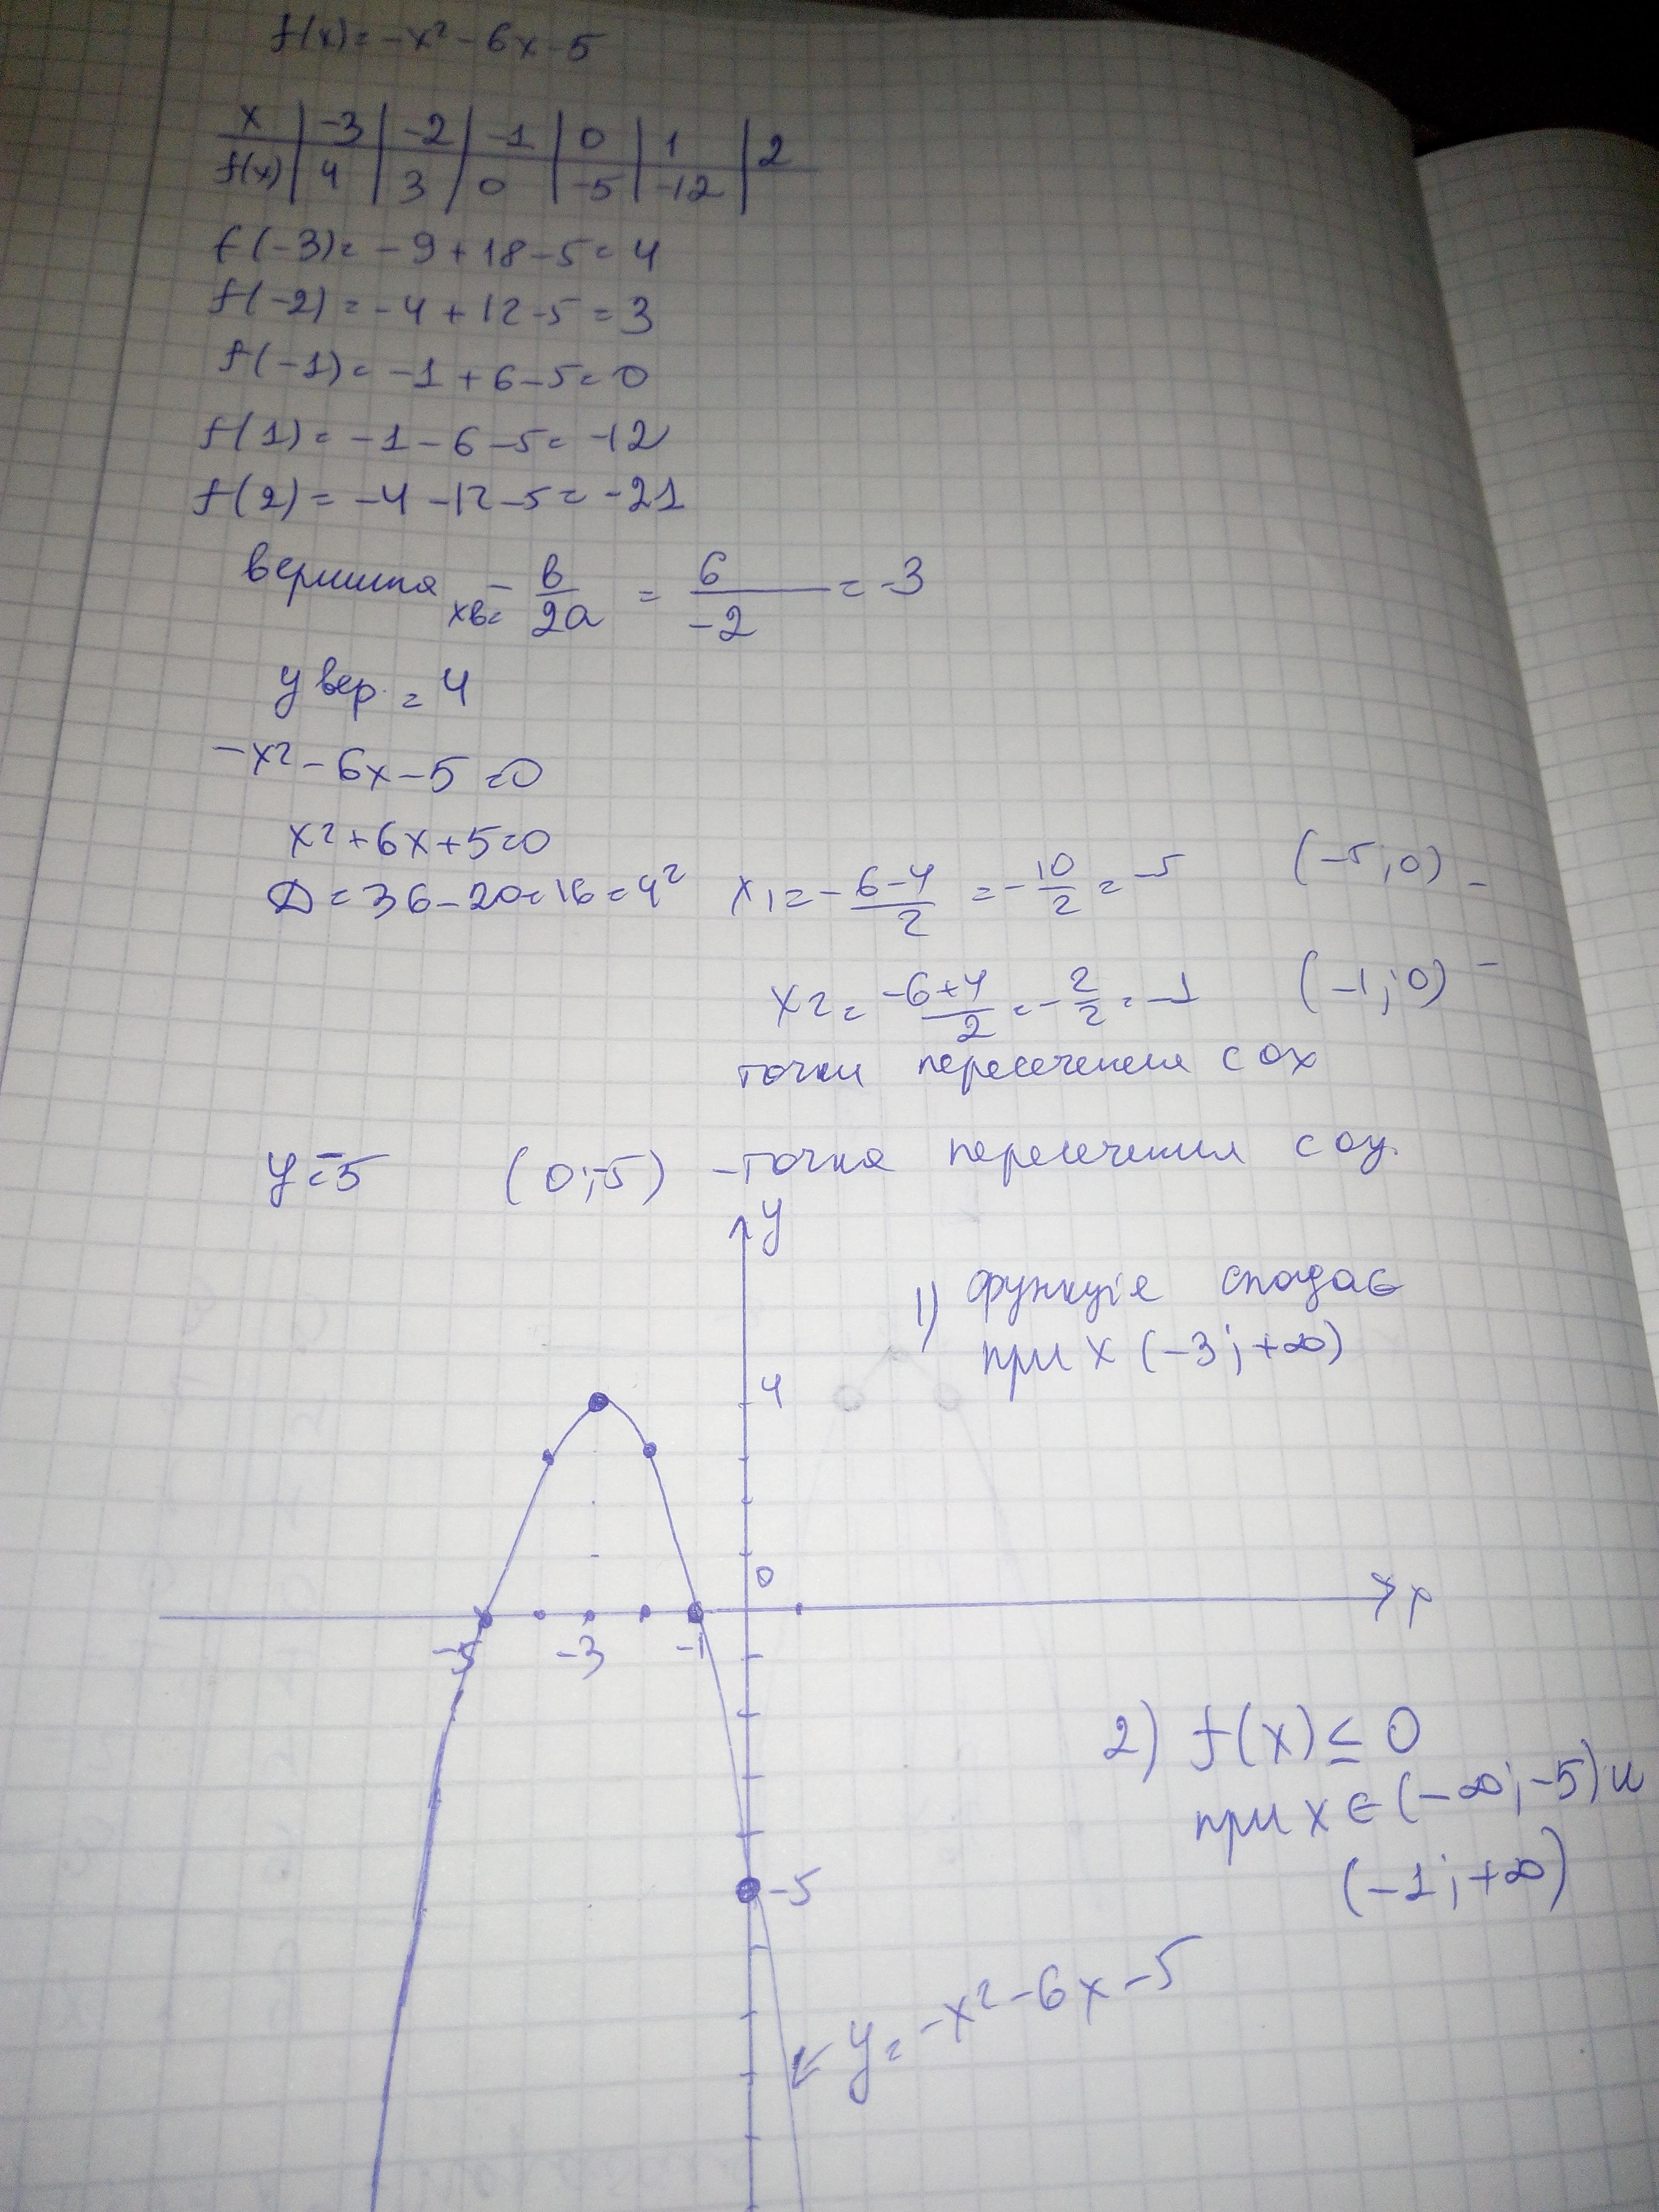 f(x)=-x²-6x-5
x | -3 | -2 | -1 | 0 | 1 | 2
f(x) | 4 | 3 | 0 | -5 | -12 |
f(-3)=-9+18-5=4
f(-2)=-4+12-5=3
f(-1)=-1+6-5=0
f(1)=-1-6-5=-12
f(2)=-4-12-5=-21
вершина xв=-в/2a=6/-2=-3
y вер.=4
-x²-6x-5=0
x²+6x+5=0
D=36-20=16=4² x1=-6-4/2=-10/2=-5 (-5;0) -
x2=-6+4/2=-2/2=-1 (-1;0) -
точки пересечения с ox
y=-5 (0;-5) -точка пересечения с oy.
y
1) функція спадає
при x (-3;+∞)
4
0
-5 -3 -1
2) f(x)≤0
при x∈(-∞;-5)и
(-1;+∞)
-5
y=-x²-6x-5